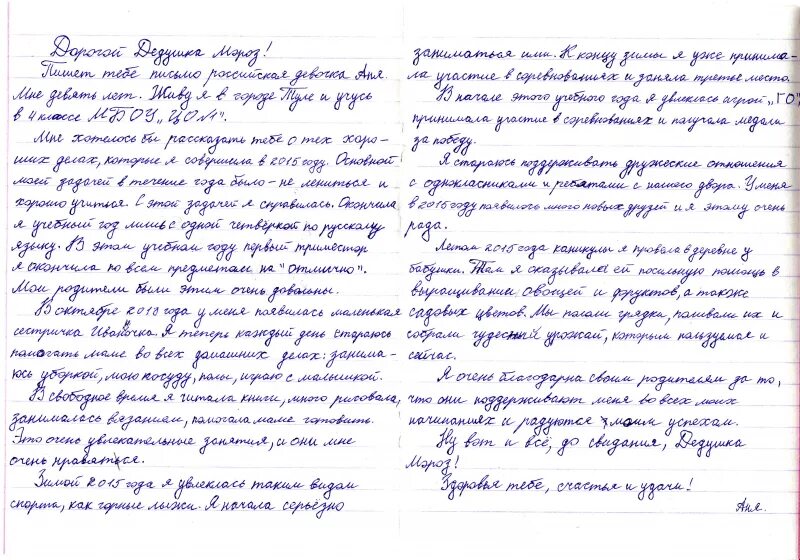 Дорогой Дедушка Мороз!
Пишет тебе письмо российская девочка Аня.
Мне девять лет. Живу я в городе Туле и учусь
в 4 классе МБОУ „ЦО №1".
Мне хотелось бы рассказать тебе о тех хоро-
ших делах, которые я совершила в 2015 году. Основной
моей задачей в течение года было - не лениться и
хорошо учиться. С этой задачей я справилась. Окончила
я учебный год лишь с одной четвёркой по русскому
языку. В этом учебном году первый триместр
я окончила по всем предметам на "отлично".
Мои родители были этим очень довольны.
В октябре 2013 года у меня появилась маленькая
сестричка Иваночка. Я теперь каждый день стараюсь
помогать маме во всех домашних делах: занима-
юсь уборкой, мою посуду, полы, играю с малышкой.
В свободное время я читала книги, много рисовала,
занималась вязанием, помогала маме готовить.
Это очень увлекательные занятия, и они мне
очень нравятся.
Зимой 2015 года я увлеклась таким видом
спорта, как горные лыжи. Я начала серьёзно
заниматься ими. К концу зимы я уже принима-
ла участие в соревнованиях и заняла третье место.
В начале этого учебного года я увлеклась игрой „ГО",
принимала участие в соревнованиях и получала медали
за победу.
Я стараюсь поддерживать дружеские отношения
с однокласниками и ребятами с нашего двора. У меня
в 2015 году появилось много новых друзей и я этому очень
рада.
Летом 2015 года каникулы я провела в деревне у
бабушки. Там я оказывала ей посильную помощь в
выращивании овощей и фруктов, а также
садовых цветов. Мы пололи грядки, поливали их и
собрали чудесный урожай, которым пользуемся и
сейчас.
Я очень благодарна своим родителям за то,
что они поддерживают меня во всех моих
начинаниях и радуются моим успехам.
Ну вот и всё, до свидания, Дедушка
Мороз!
Здоровья тебе, счастья и удачи!
Аня.